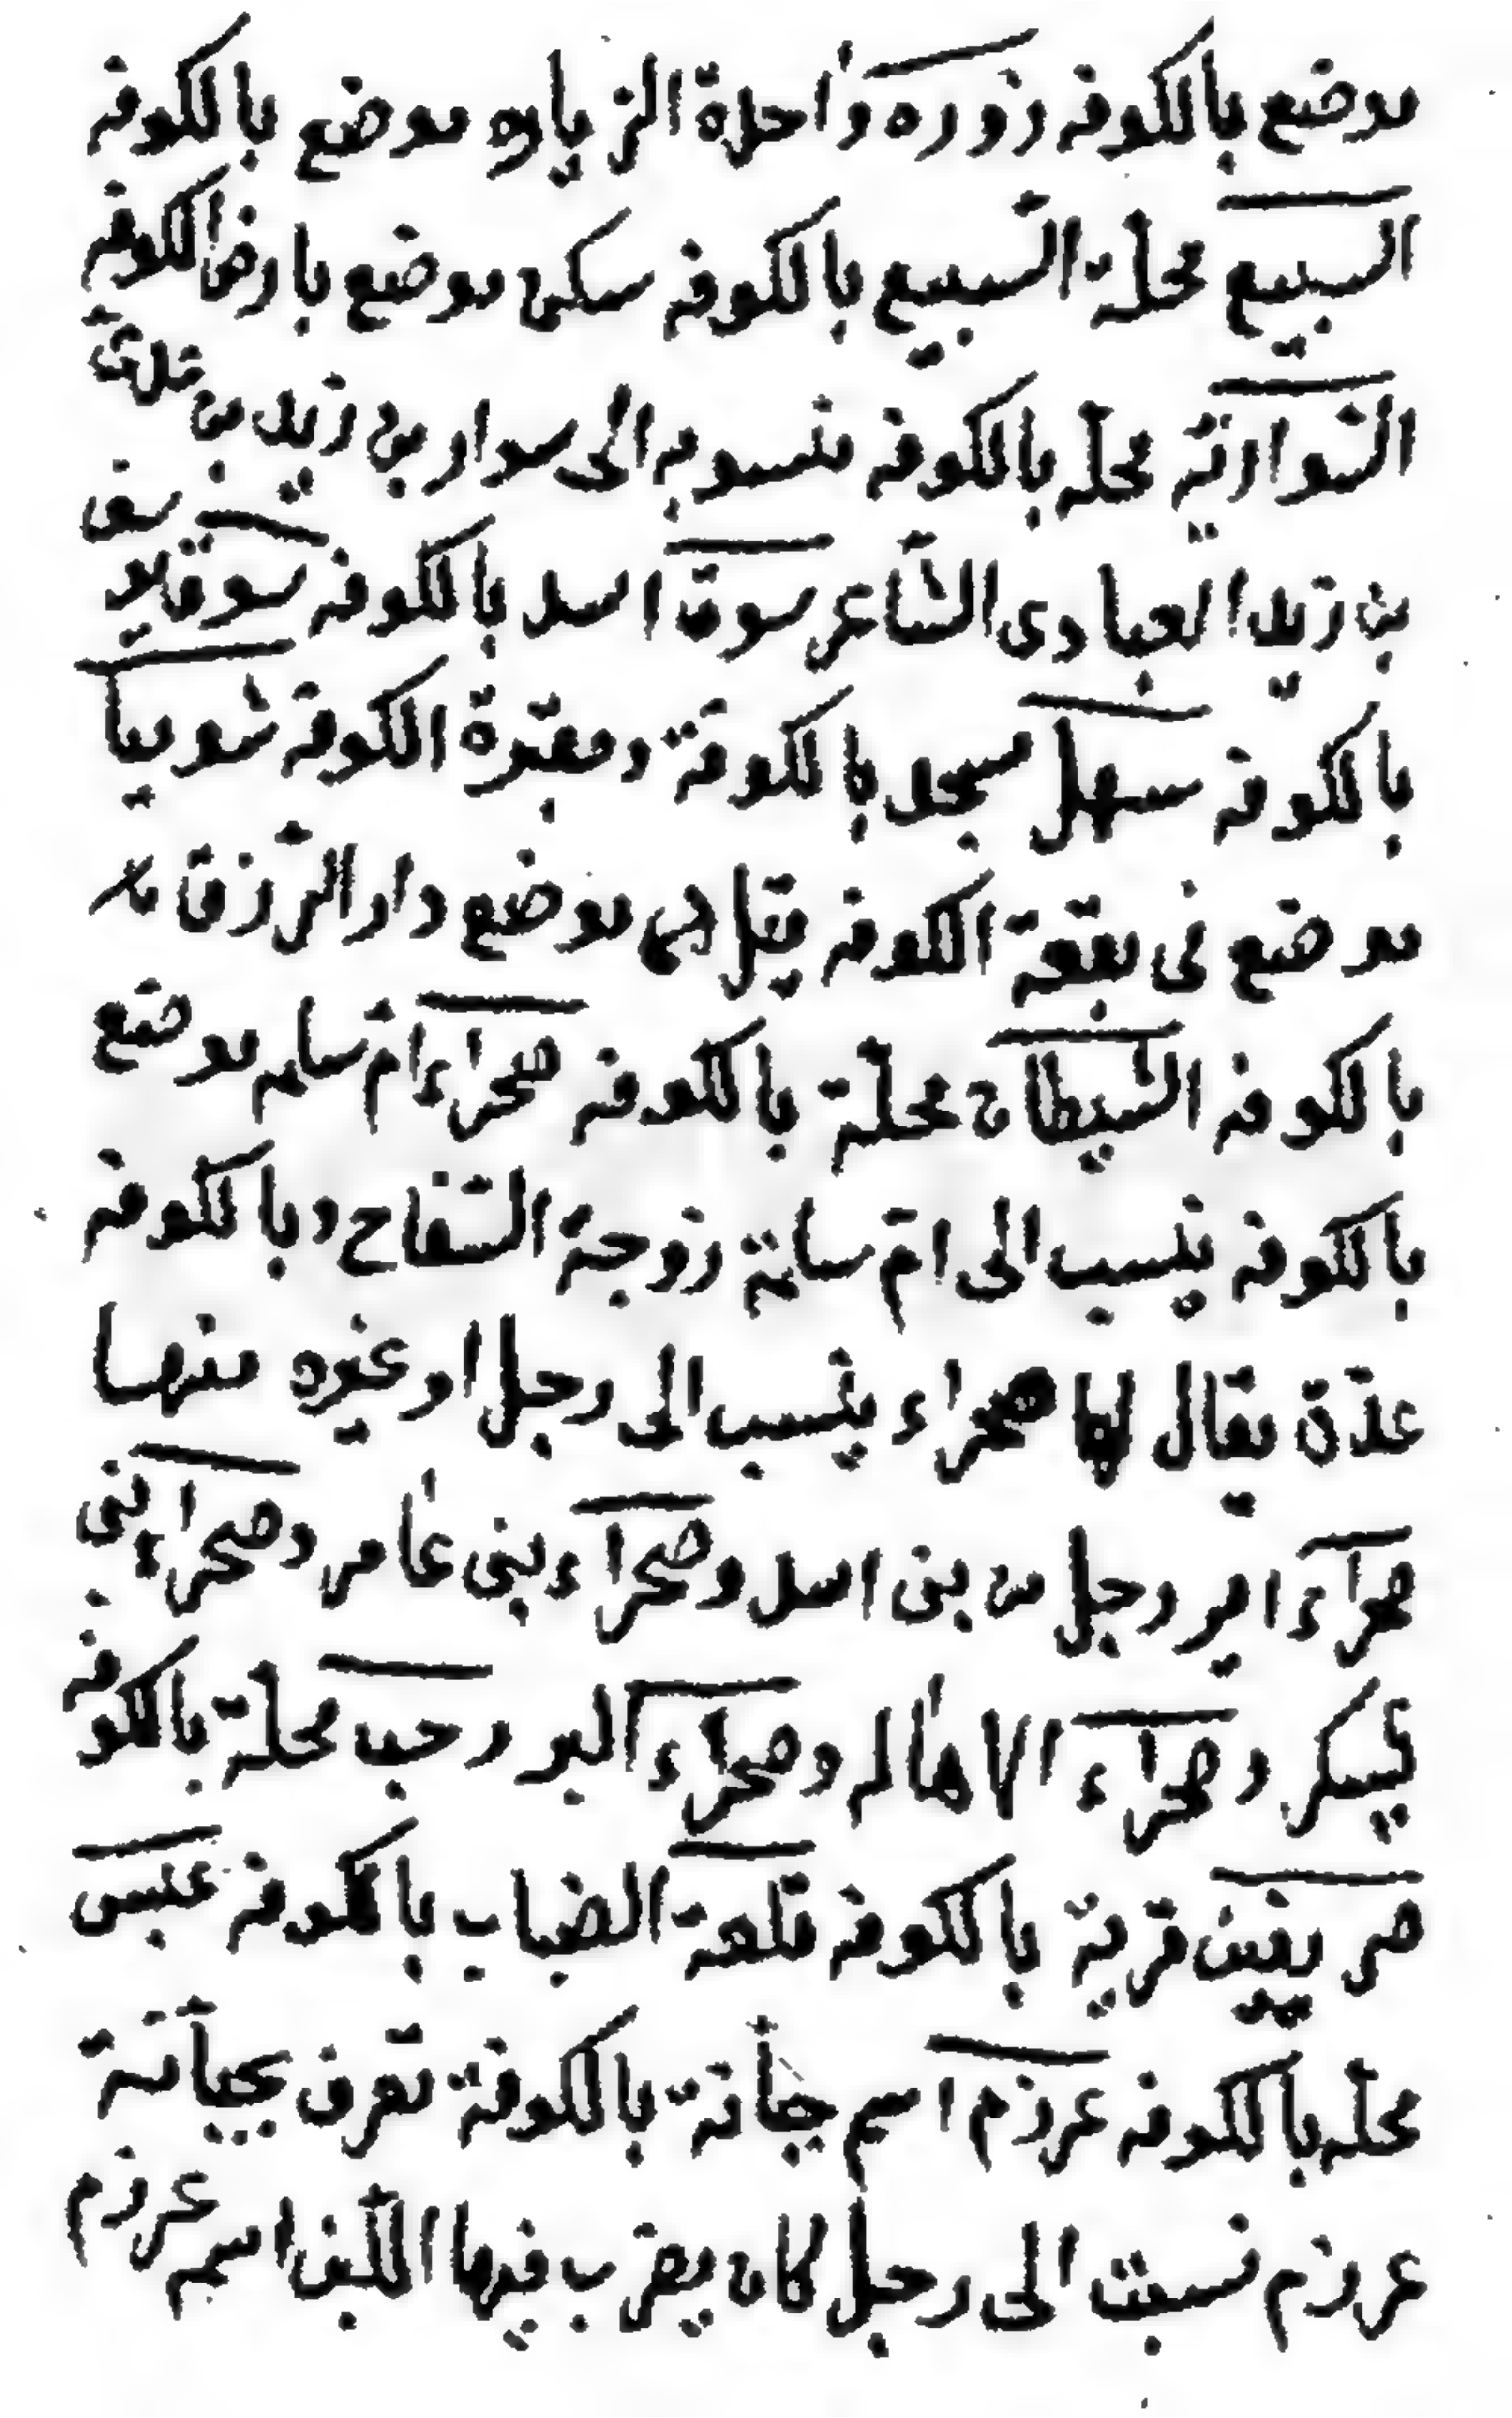 موضع بالكوفه زوره واحدة الزياره موضع بالكوفه
السبيع محلة السبيع بالكوفه سكن موضع بارض الكوفه
السّوارية محله بالكوفه منسوبه الى سوار بن زيد بن
بن زيد العبادى الشاعر سوق اسد بالكوفه سوق
بالكوفه سهل مسجد بالكوفة ومقبرة الكوفة شوميا
موضع فى بقعة الكوفه يقل هى موضع دار الرّزق
بالكوفه الشيطان محلّة بالكوفه صحراء امّ سلمه موضع
بالكوفه ينسب الى امّ سلمة زوجة السّفاح وبالكوفه
عدّة يقال لها صحراء ينسب الى رجل او غيره منها
صحراء اثير رجل من بنى اسد وصحراء بنى عامر وصحراء بنى
يسكر وصحراء الاهاله وصحراء البر رحب محلة بالكوفه
صريفين قرية بالكوفه قلعة الضباب بالكوفه عبس
محله بالكوفه عرزم اسم جبانة بالكوفة تعرف بجبانة
عرزم نسبت الى رجل كان يضرب فيها اللّبن اسمه عرزم